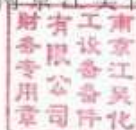 南京江吴化
工设备备件
有限公司
财务专用章